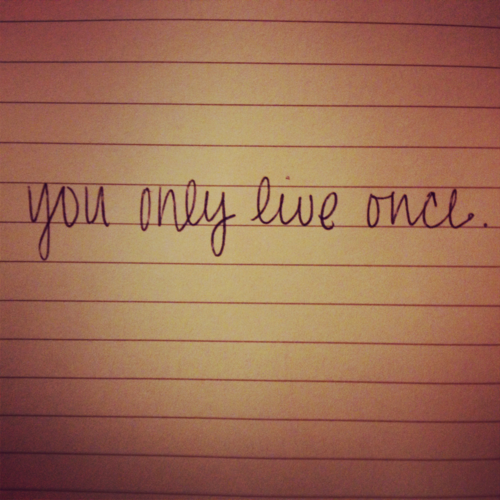 you only live once.